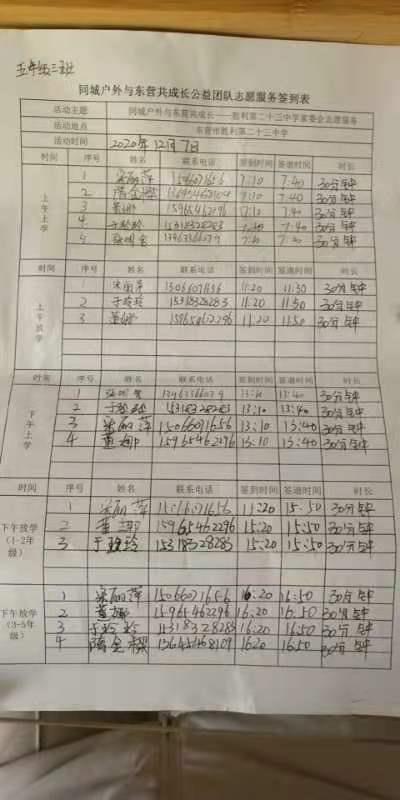 五年级三班
同城户外与东营共成长公益团队志愿服务签到表
活动主题 同城户外与东营共成长——胜利第二十三中学家委会志愿服务
活动地点 东营市胜利第二十三中学
活动时间 2020年12月7日
时间 序号 姓名 联系电话 签到时间 签退时间 时长
上午上学
1 7:10 7:40 30分钟
2 隋金樑 7:10 7:40 30分钟
3 董娜 15965462296 7:10 7:40 30分钟
4 于玲玲 15318328283 7:40 30分钟
7:40 30分钟
时间 序号 姓名 联系电话 签到时间 签退时间 时长
上午放学
1 11:20 11:50 30分钟
2 于玲玲 15318328283 11:20 11:50 30分钟
3 董娜 15965462296 11:20 11:50 30分钟
时间 序号 姓名 联系电话 签到时间 签退时间 时长
下午上学
1 13:10 13:40 30分钟
2 于玲玲 15318328283 13:10 13:40 30分钟
3 15066071656 13:10 13:40 30分钟
4 董娜 15965462296 13:10 13:40 30分钟
时间 序号 姓名 联系电话 签到时间 签退时间 时长
下午放学(1-2年级)
1 15:50 30分钟
2 董娜 15965462296 15:20 15:50 30分钟
3 于玲玲 15318328283 15:20 15:50 30分钟
下午放学(3-5年级)
1 15066071656 16:20 16:50 30分钟
2 董娜 15965462296 16:20 16:50 30分钟
3 于玲玲 15318328283 16:20 16:50 30分钟
4 隋金樑 16:20 16:50 30分钟